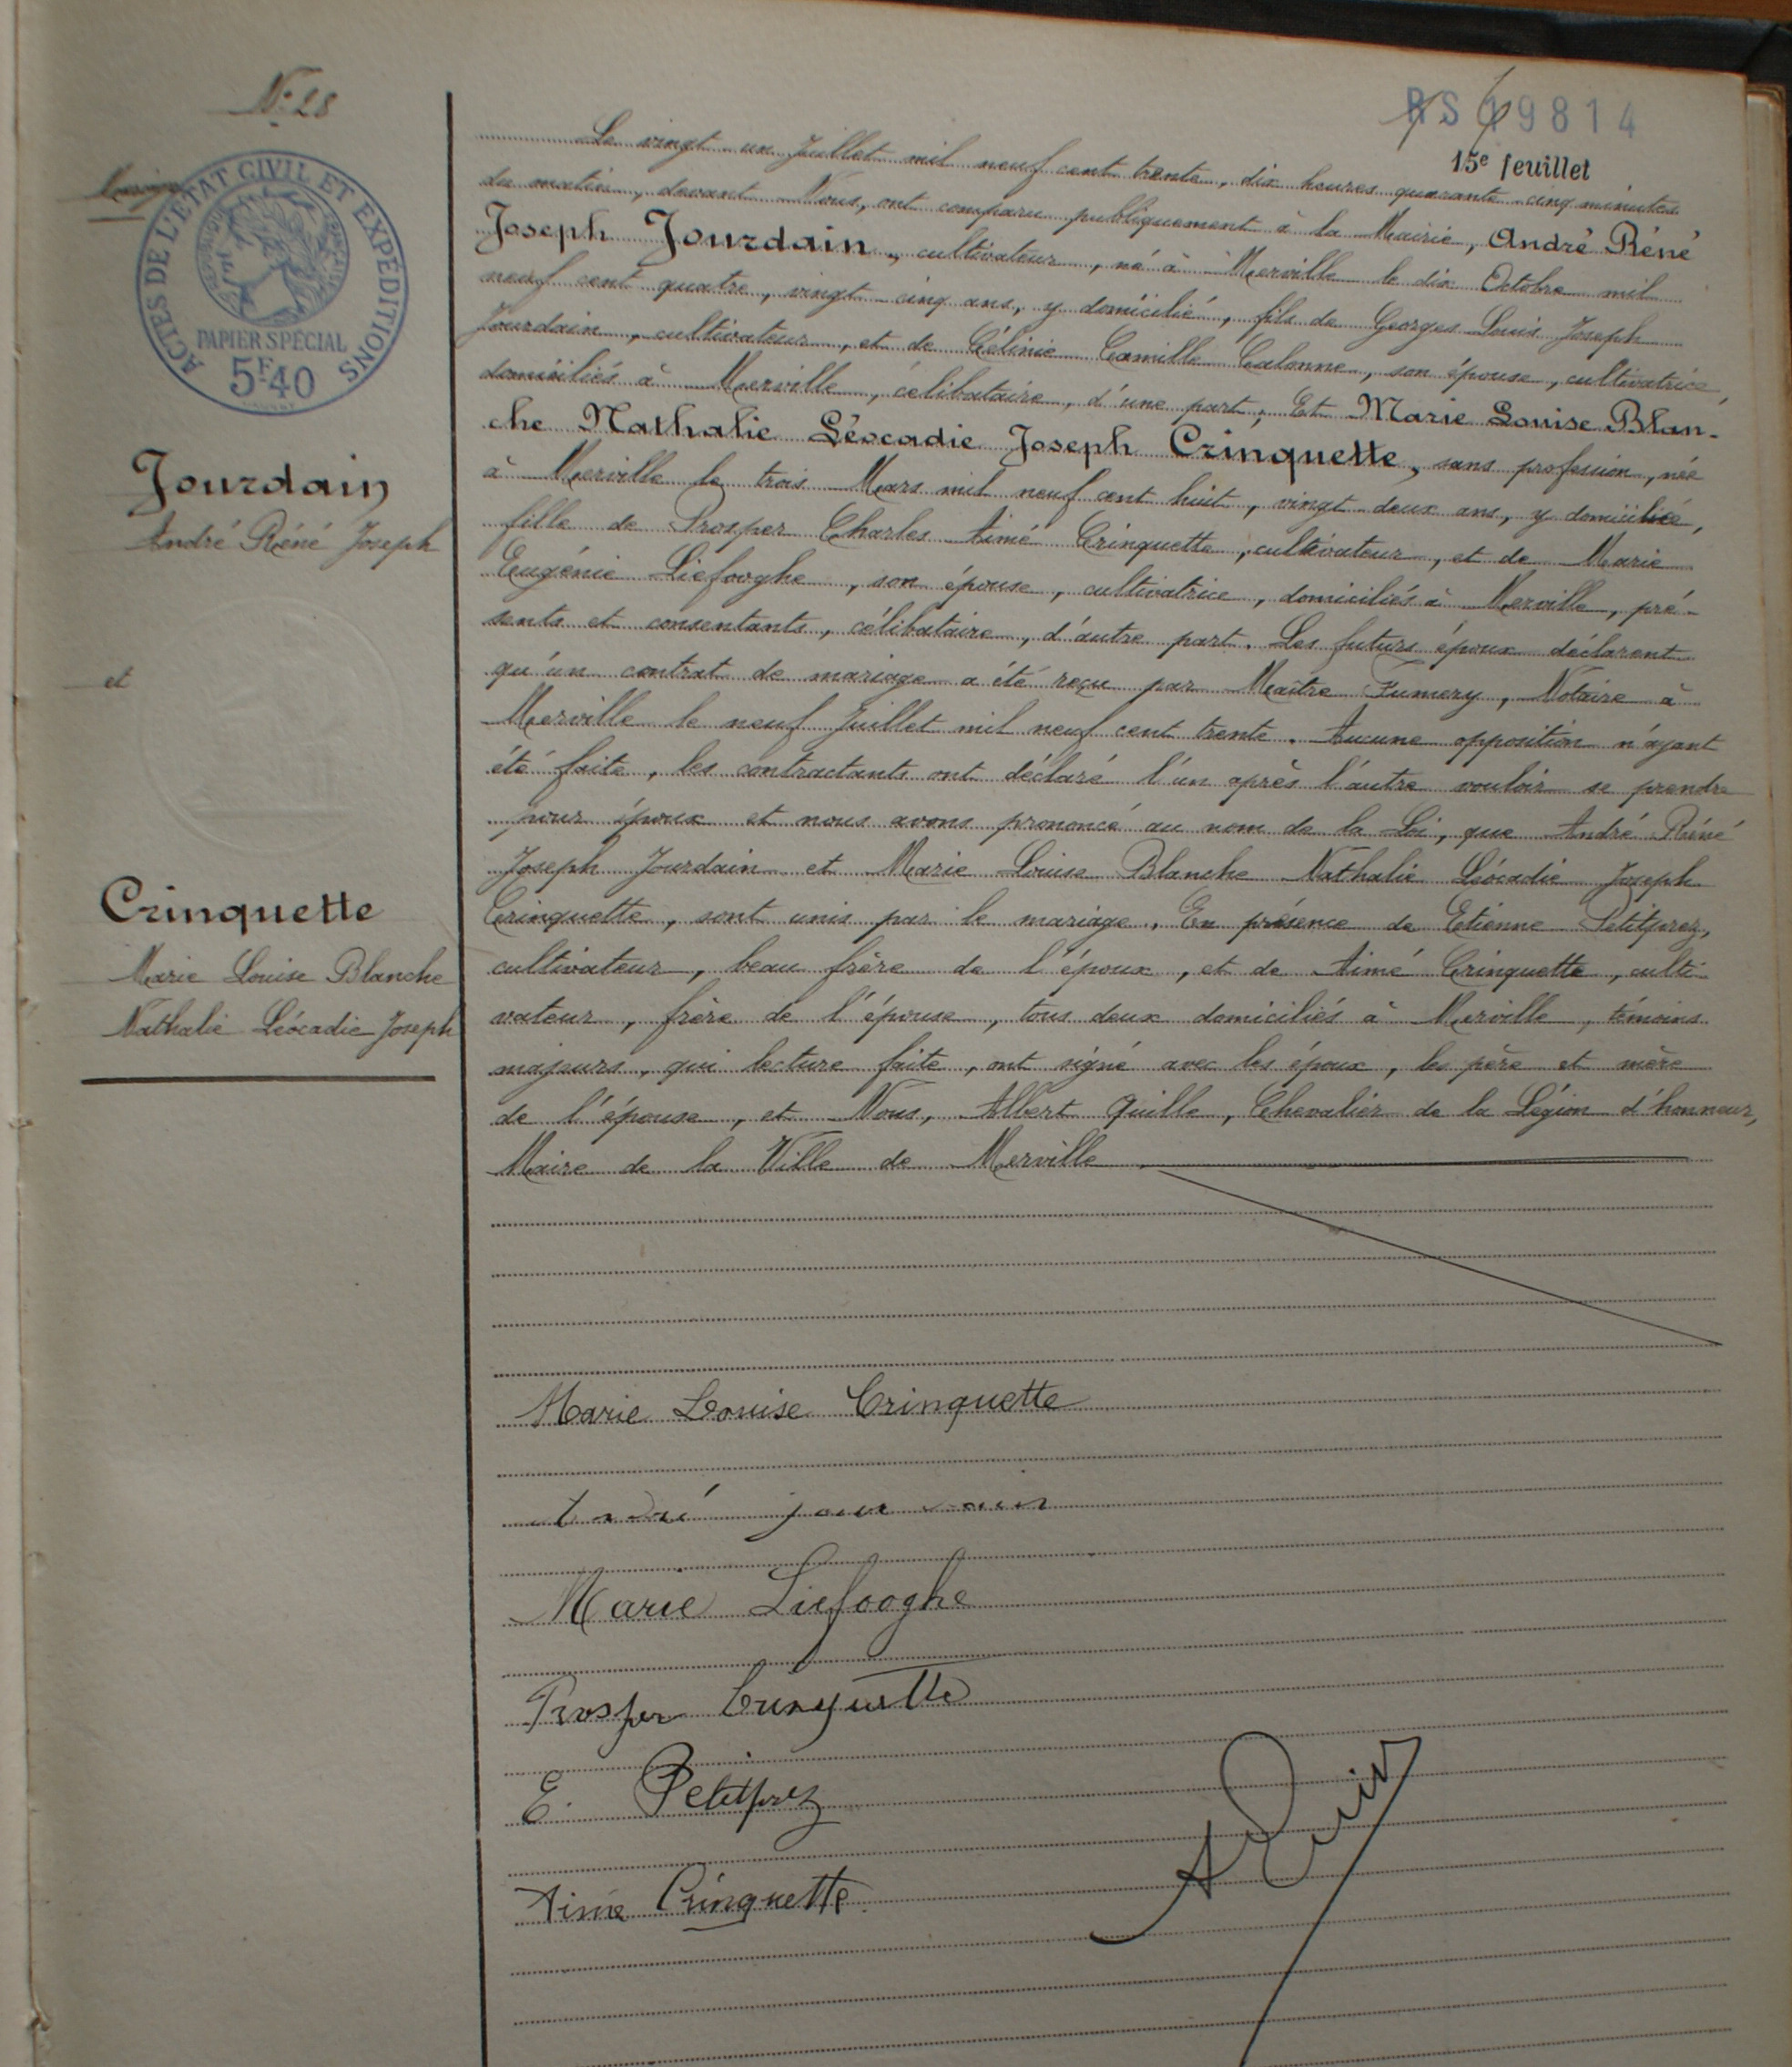 N° 28
ACTES DE L'ÉTAT CIVIL ET EXPÉDITIONS
RÉPUBLIQUE FRANÇAISE
PAPIER SPÉCIAL
5F40
Jourdain
André Réné Joseph
et
Crinquette
Marie Louise Blanche
Nathalie Léocadie Joseph
9814
15e feuillet
Le vingt-un Juillet mil neuf cent trente, dix heures quarante-cinq minutes
du matin, devant Nous, ont comparu publiquement à la Mairie, André Réné
Joseph Jourdain, cultivateur, né à Merville le dix Octobre mil
neuf cent quatre, vingt-cinq ans, y domicilié, fils de Georges Louis Joseph
Jourdain, cultivateur, et de Célinie Camille Calonne, son épouse, cultivatrice,
domiciliés à Merville, célibataire, d'une part, Et Marie Louise Blan-
che Nathalie Léocadie Joseph Crinquette, sans profession, née
à Merville le trois Mars mil neuf cent huit, vingt-deux ans, y domiciliée,
fille de Prosper Charles Aimé Crinquette, cultivateur, et de Marie
Eugénie Liefooghe, son épouse, cultivatrice, domiciliés à Merville, pré-
sents et consentants, célibataire, d'autre part. Les futurs époux déclarent
qu'un contrat de mariage a été reçu par Maître Fumery, Notaire à
Merville le neuf Juillet mil neuf cent trente. Aucune opposition n'ayant
été faite, les contractants ont déclaré l'un après l'autre vouloir se prendre
pour époux et nous avons prononcé au nom de la Loi, que André Réné
Joseph Jourdain et Marie Louise Blanche Nathalie Léocadie Joseph
Crinquette, sont unis par le mariage. En présence de Etienne Petitprez,
cultivateur, beau frère de l'époux, et de Aimé Crinquette, culti-
vateur, frère de l'épouse, tous deux domiciliés à Merville, témoins
majeurs, qui lecture faite, ont signé avec les époux, les père et mère
de l'épouse, et Nous, Albert Quille, Chevalier de la Légion d'honneur,
Maire de la Ville de Merville
Marie Louise Crinquette
André jourdain
Marie Liefooghe
Prosper Crinquette
E. Petitprez
Aimé Crinquette